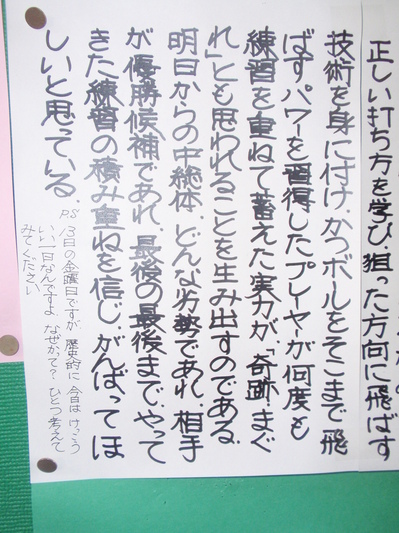 正しい打ち方を学び、狙った方向に飛ばす
技術を身に付け、かつボールをそこまで飛
ばすパワーを習得したプレイヤーが何度も
練習を重ねて蓄えた実力が、「奇跡、まぐ
れ」とも思われることを生み出すのである。
明日からの中総体、どんな劣勢であれ、相手
が優勝候補であれ、最後の最後まで、やって
きた練習の積み重ねを信じ、がんばってほ
しいと思っている。
P.S 13日の金曜日ですが、歴史的に今日は、けっこう
いい一日なんですよ。なぜかって?ひとつ考えて
みてください